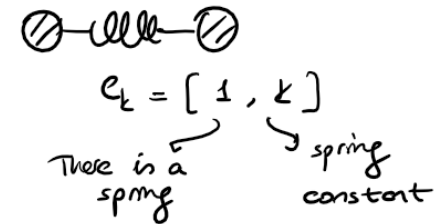 e_k = [ 1 , k ]
There is a
spring
spring
constant